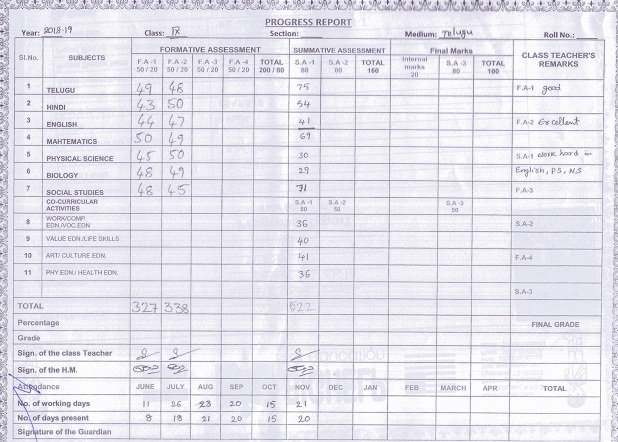 PROGRESS REPORT
Year: 2018-19 Class: IX Section: Medium: Telugu Roll No.:
Sl.No. SUBJECTS FORMATIVE ASSESSMENT SUMMATIVE ASSESSMENT Final Marks CLASS TEACHER'S REMARKS
F.A -1 50 / 20 F.A -2 50 / 20 F.A -3 50 / 20 F.A -4 50 / 20 TOTAL 200 / 80 S.A -1 80 S.A -2 80 TOTAL 160 Internal marks 20 S.A -3 80 TOTAL 100
1 TELUGU 49 48 75 F.A-1 good
2 HINDI 43 50 54
3 ENGLISH 44 47 41 F.A-2 Excellent
4 MAHTEMATICS 50 49 69
5 PHYSICAL SCIENCE 45 50 30 S.A-1 work hard in
6 BIOLOGY 48 49 29 English, P.S, N.S
7 SOCIAL STUDIES 48 45 71 F.A-3
CO-CURRICULAR ACTIVITIES S.A -1 50 S.A -2 50 S.A -3 50
8 WORK/COMP. EDN./VOC.EDN 36 S.A-2
9 VALUE EDN./LIFE SKILLS 40
10 ART/ CULTURE EDN. 41 F.A-4
11 PHY.EDN./ HEALTH EDN. 36
S.A-3
TOTAL 327 338 522
Percentage FINAL GRADE
Grade
Sign. of the class Teacher
Sign. of the H.M.
Attendance JUNE JULY AUG SEP OCT NOV DEC JAN FEB MARCH APR TOTAL
No. of working days 11 26 23 20 15 21
No. of days present 8 18 21 20 15 20
Signature of the Guardian